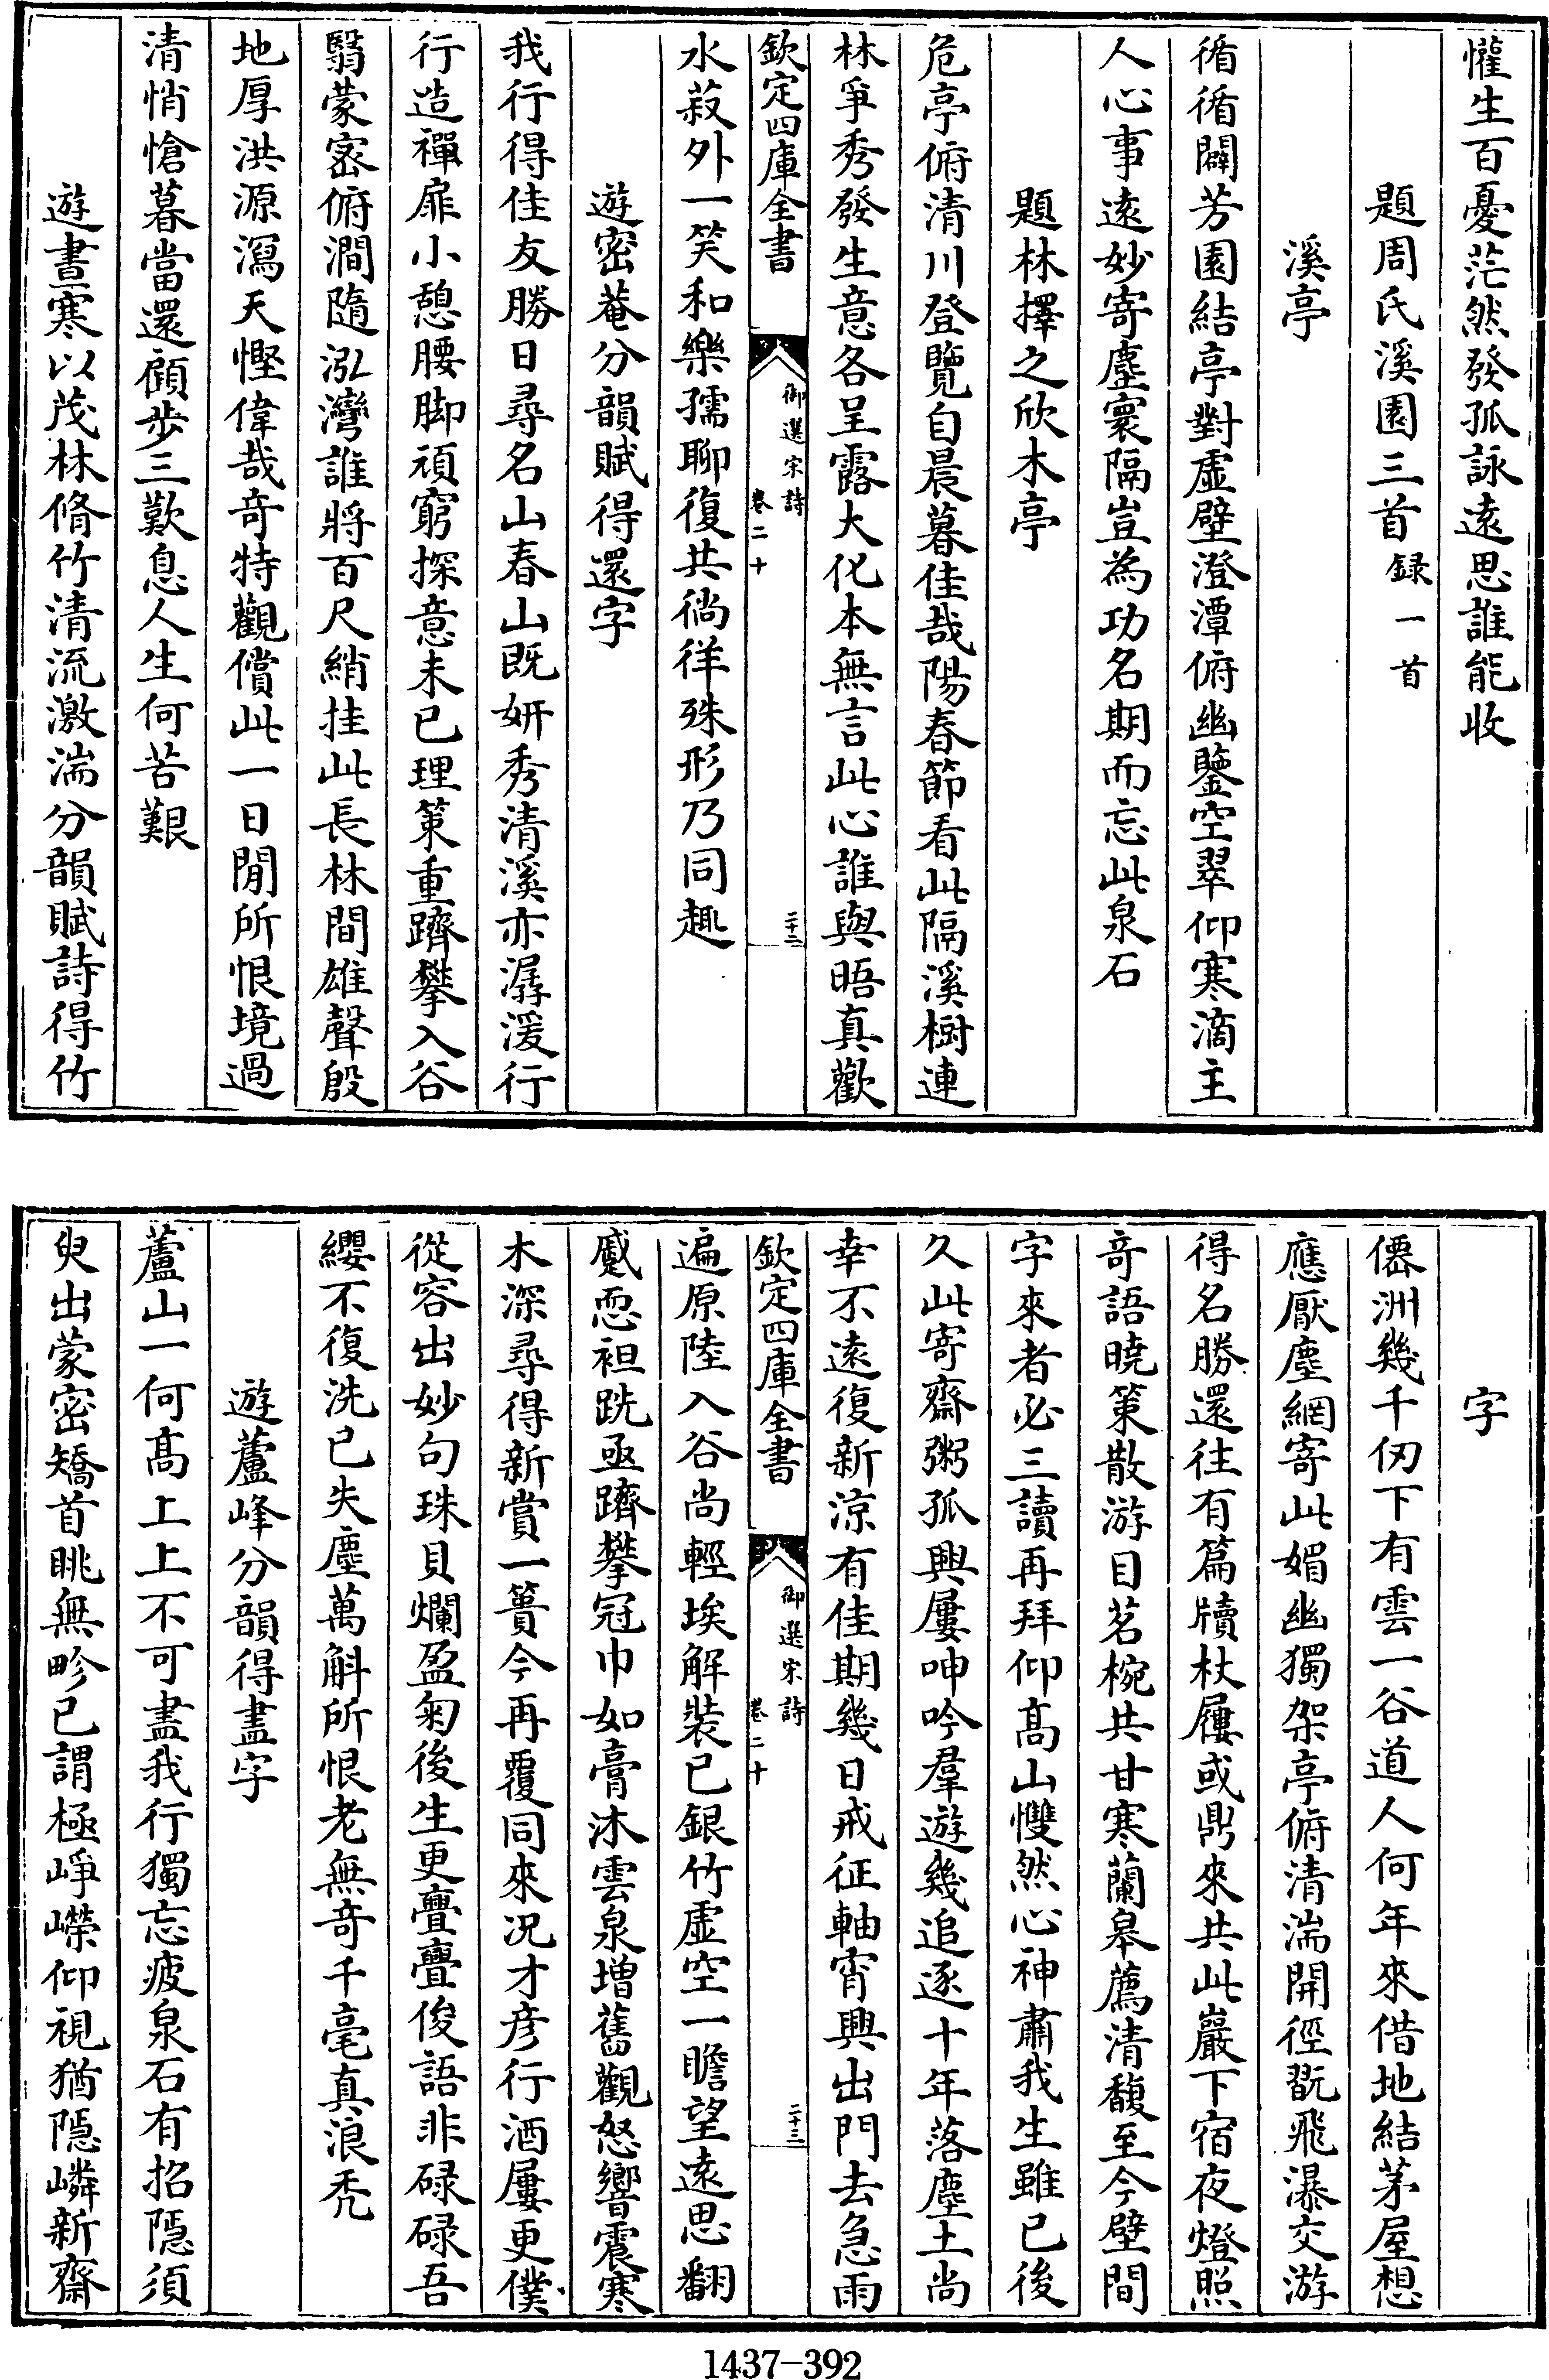 懽生百憂茫然發孤詠遠思誰能收
題周氏溪園三首録一首
溪亭
循循闢芳園結亭對虛壁澄潭俯幽鑒空翠仰寒滴主
人心事遠妙寄塵寰隔豈為功名期而忘此泉石
題林擇之欣木亭
危亭俯清川登覽自晨暮佳哉陽春節看此隔溪樹連
林爭秀發生意各呈露大化本無言此心誰與晤真歡
欽定四庫全書
御選宋詩
卷二十
二十二
水菽外一笑和樂孺聊復共徜徉殊形乃同趣
遊密菴分韻賦得還字
我行得佳友勝日尋名山春山既妍秀清溪亦潺湲行
行造禪扉小憩腰脚頑窮探意未已理策重躋攀入谷
翳蒙密俯澗隨泓灣誰將百尺綃挂此長林間雄聲殷
地厚洪源瀉天慳偉哉奇特觀償此一日閒所恨境過
清悄愴暮當還顧步三歎息人生何苦艱
遊晝寒以茂林脩竹清流激湍分韻賦詩得竹
字
僊洲幾千仞下有雲一谷道人何年來借地結茅屋想
應厭塵網寄此媚幽獨架亭俯清湍開徑翫飛瀑交游
得名勝還往有篇牘杖屨或鼎來共此巖下宿夜燈照
奇語曉策散游目茗椀共甘寒蘭皋薦清馥至今壁間
字來者必三讀再拜仰高山慴然心神肅我生雖已後
久此寄齋粥孤興屢呻吟羣遊幾追逐十年落塵土尚
幸不遠復新涼有佳期幾日戒征軸宵興出門去急雨
欽定四庫全書
御選宋詩
卷二十
二十三
遍原陸入谷尚輕埃解裝已銀竹虛空一瞻望遠思翻
蹙恧袒跣亟躋攀冠巾如膏沐雲泉增舊觀怒響震寒
木深尋得新賞一簣今再覆同來况才彦行酒屢更僕
從容出妙句珠貝爛盈匊後生更亹亹俊語非碌碌吾
纓不復洗已失塵萬斛所恨老無奇千毫真浪禿
遊蘆峰分韻得盡字
蘆山一何高上上不可盡我行獨忘疲泉石有招隠須
臾出蒙密矯首眺無畛已謂極崢嶸仰視猶隠嶙新齋
1437-392